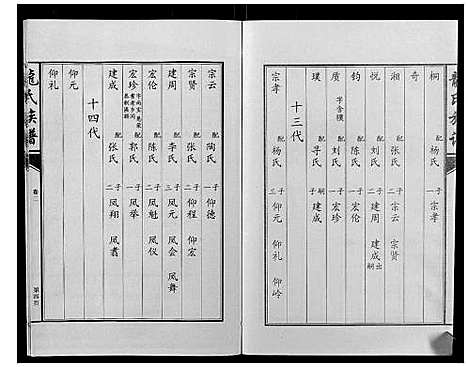 龍氏族譜
桐 配 杨氏 一子 宗孝
奇
湘 配 张氏 二子 宗云 宗贤
悦 配 刘氏 二子 建周 建成 出嗣
钧 配 陈氏 一子 宏伦
质 字含横 配 刘氏 一子 宏珍
璞 配 寻氏 嗣子 建成
十三代
宗孝 配 杨氏 三子 仰元 仰礼 仰岭
宗云 配 陶氏 一子 仰德
宗贤 配 张氏 二子 仰程 仰宏
建周 配 李氏 三子 凤元 凤会 凤舞
宏伦 配 陈氏 二子 凤魁 凤仪
宏珍 配 郭氏 一子 凤举
建成 配 张氏 二子 凤翔 凤翥
十四代
仰元
仰礼
龍氏族譜
卷二
第四页